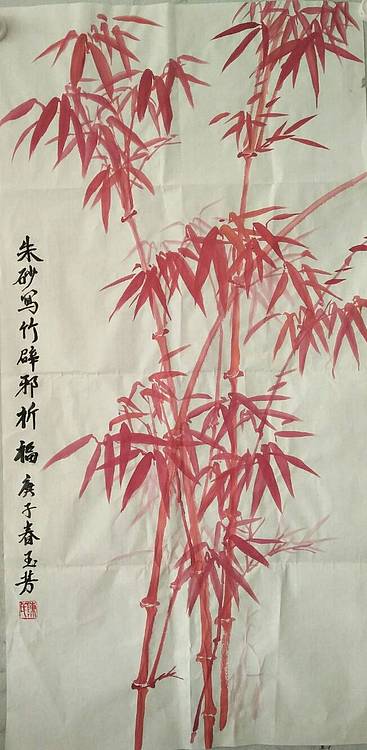 朱砂寫竹辟邪祈福庚子春玉芳